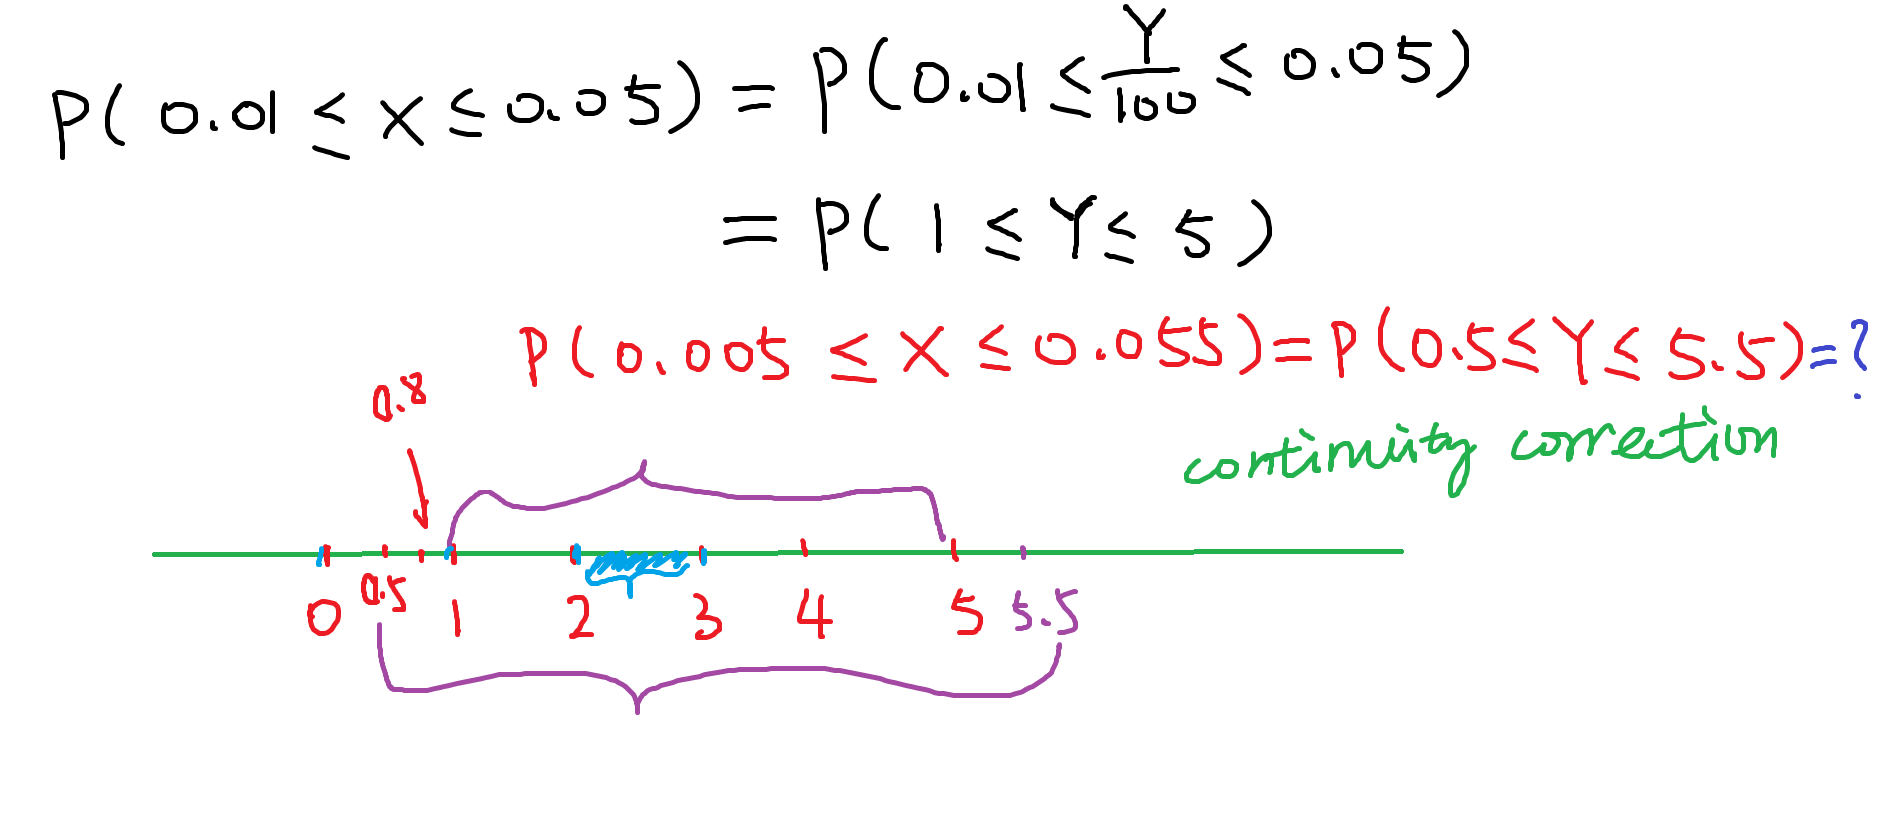 P( 0.01 ≤ X ≤ 0.05) = P( 0.01 ≤ Y/100 ≤ 0.05)
= P( 1 ≤ Y ≤ 5 )
P( 0.005 ≤ X ≤ 0.055) = P( 0.5 ≤ Y ≤ 5.5) = ?
0.8
continuity correction
0 0.5 1 2 3 4 5 5.5